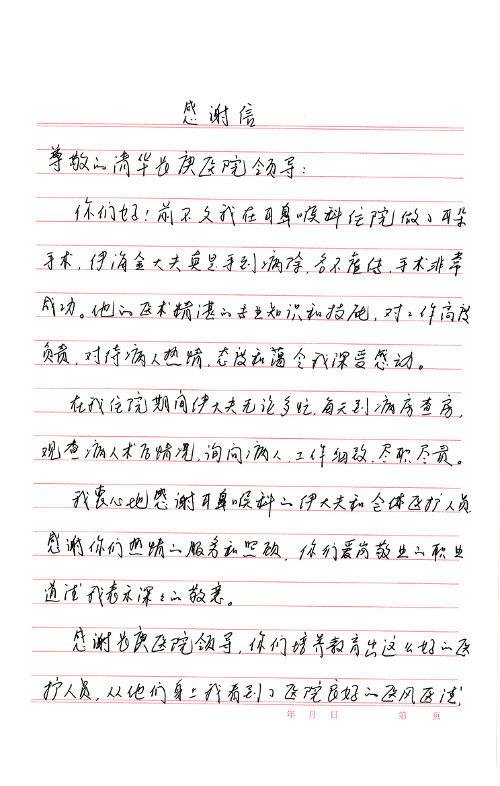 感谢信
尊敬的清华长庚医院领导：
你们好！前不久我在耳鼻喉科住院做了耳朵
手术，伊海金大夫真是手到病除，名不虚传，手术非常
成功。他的医术精湛的专业知识和技能，对工作高度
负责，对待病人热情，态度和蔼令我深受感动。
在我住院期间伊大夫无论多忙，每天到病房查房，
观查病人术后情况，询问病人，工作细致，尽职尽责。
我衷心地感谢耳鼻喉科的伊大夫和全体医护人员
感谢你们热情的服务和照顾，你们爱岗敬业的职业
道德我表示深深的敬意。
感谢长庚医院领导，你们培养教育出这么好的医
护人员，从他们身上我看到了医院良好的医风医德，
年 月 日 第 页